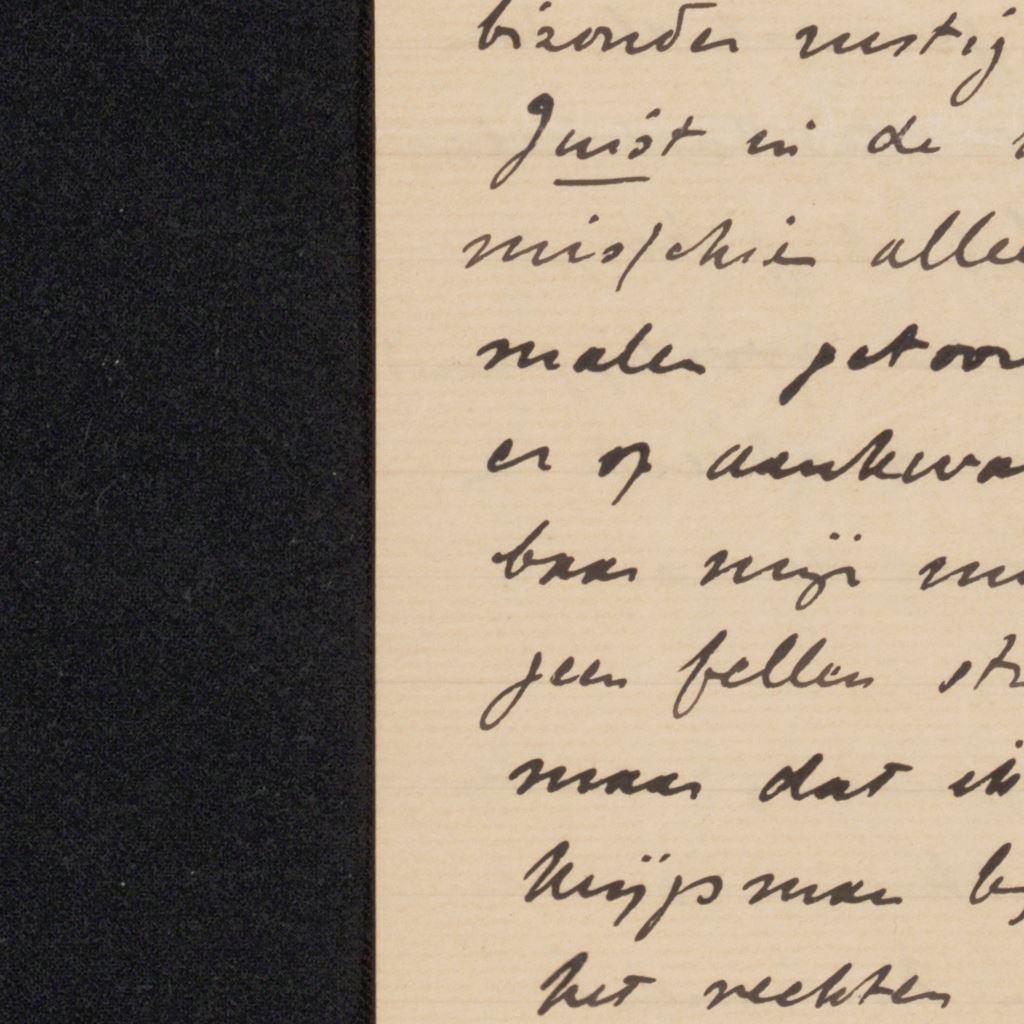 bizonder rustig
Juist in de
misschien alleen
malen getoon
er op aankwa
baar mijn
geen fellen str
maar dat ik
knijpsman
het rechten